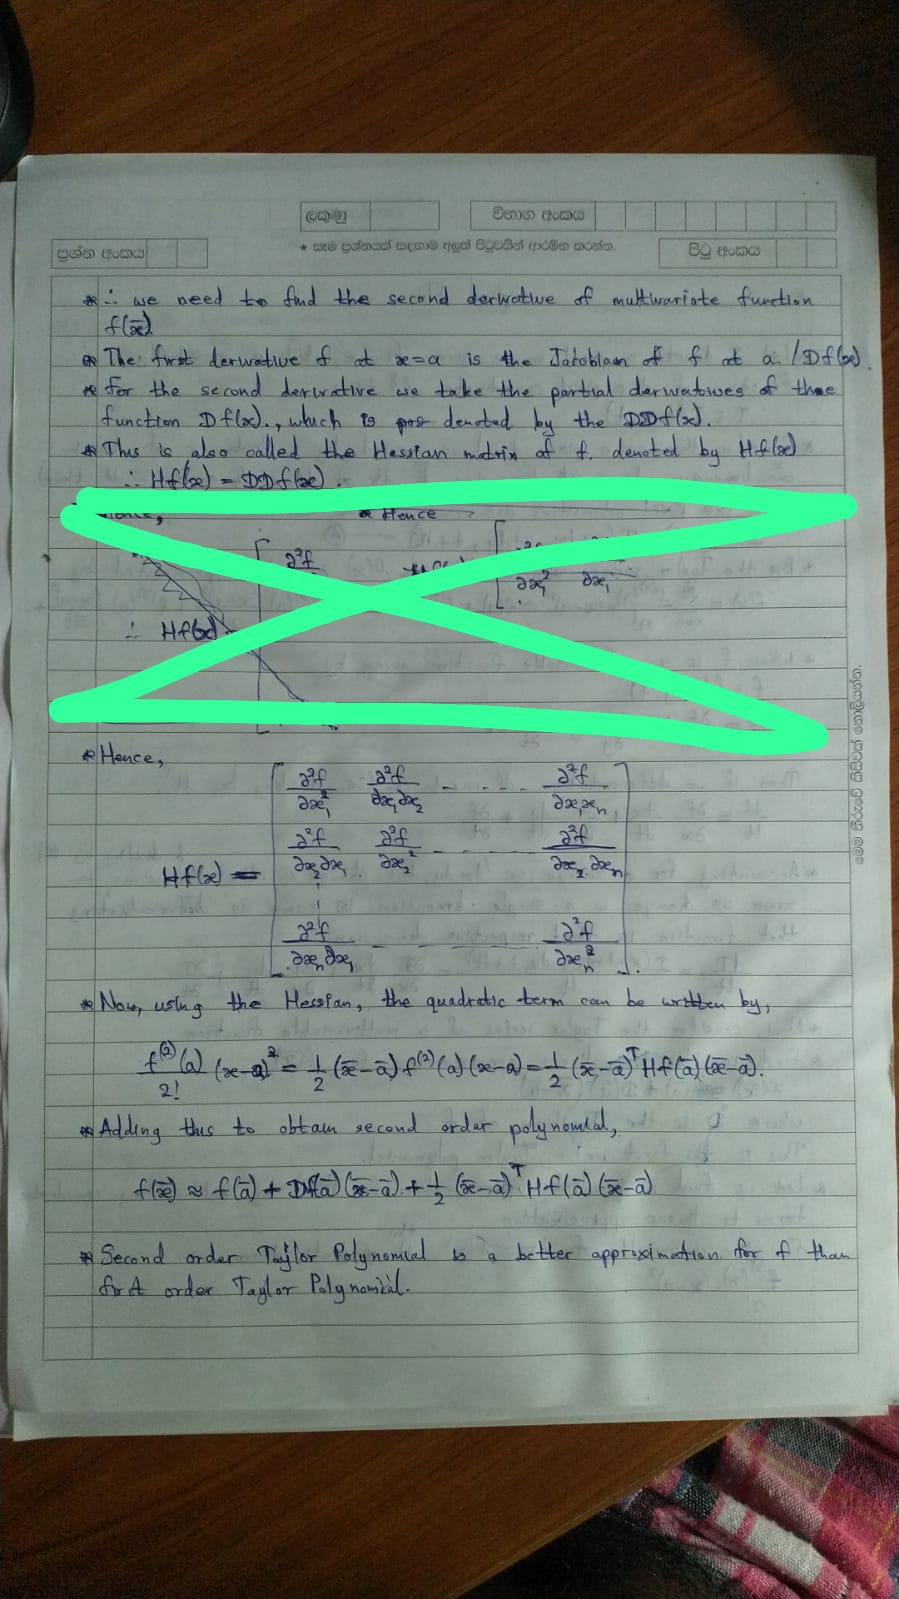 ලකුණු
විභාග අංකය
ප්‍රශ්න අංකය
★ සෑම ප්‍රශ්නයක් සඳහාම අලුත් පිටුවකින් ආරම්භ කරන්න.
පිටු අංකය
* ∴ we need to find the second derivative of multivariate function
f(x̄).
* The first derivative f at x=a is the Jacobian of f at a. / Df(x).
* for the second derivative we take the partial derivatives of the
function Df(x)., which is denoted by the DDf(x).
* This is also called the Hessian matrix of f, denoted by Hf(x)
∴ Hf(x) = DDf(x).
* Hence
∂²f
∂x₁² ∂x₁
∴ Hf(x) =
* Hence,
∂²f/∂x₁² ∂²f/∂x₁∂x₂ - - - - ∂²f/∂x₁x_n
Hf(x) = ∂²f/∂x₂∂x₁ ∂²f/∂x₂² - - - ∂²f/∂x₂.∂x_n
∂²f/∂x_n∂x₁ - - - - ∂²f/∂x_n²
* Now, using the Hessian, the quadratic term can be written by,
f⁽²⁾(a)/2! (x-a)² = 1/2 (x̄-ā) f⁽²⁾(a) (x-a) = 1/2 (x̄-ā)ᵀ Hf(ā) (x̄-ā).
* Adding this to obtain second order polynomial,
f(x̄) ≈ f(ā) + Df(ā) (x̄-ā) + 1/2 (x̄-ā)ᵀ Hf(ā) (x̄-ā)
* Second order Taylor Polynomial is a better approximation for f than
first order Taylor Polynomial.